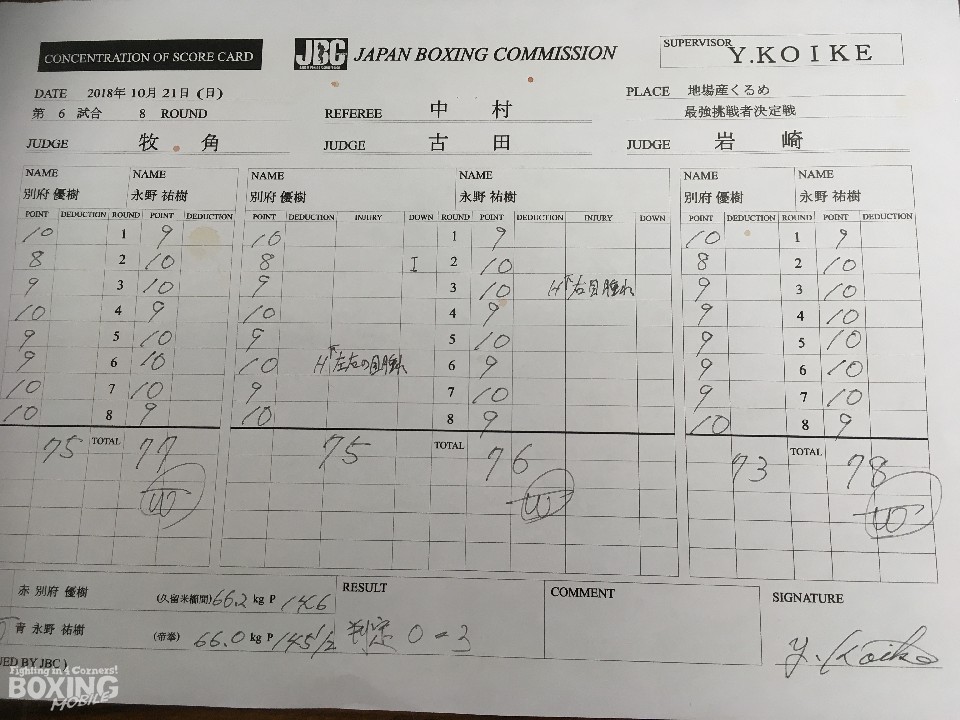 CONCENTRATION OF SCORE CARD JBC JAPAN BOXING COMMISSION SUPERVISOR Y.KOIKE
DATE 2018年 10月 21日 (日) PLACE 地場産くるめ
第 6 試合 8 ROUND REFEREE 中 村 最強挑戦者決定戦
JUDGE 牧 角 JUDGE 古 田 JUDGE 岩 崎
NAME NAME NAME NAME NAME NAME
別府 優樹 永野 祐樹 別府 優樹 永野 祐樹 別府 優樹 永野 祐樹
POINT DEDUCTION ROUND POINT DEDUCTION POINT DEDUCTION INJURY DOWN ROUND POINT DEDUCTION INJURY DOWN POINT DEDUCTION ROUND POINT DEDUCTION
10 1 9 10 1 9 10 1 9
8 2 10 8 I 2 10 8 2 10
9 3 10 9 3 10 H 右目腫れ 9 3 10
10 4 9 10 4 9 9 4 10
9 5 10 9 5 10 9 5 10
9 6 10 10 H 左右の目腫れ 6 9 9 6 10
10 7 10 9 7 10 9 7 10
10 8 9 10 8 9 10 8 9
75 TOTAL 77 75 TOTAL 76 73 TOTAL 78
W W W
赤 別府 優樹 (久留米櫛間) 66.2 kg P 146 RESULT COMMENT SIGNATURE
青 永野 祐樹 (帝拳) 66.0 kg P 145 1/2 判定 0-3 Y. Koike
UED BY JBC )
Fighting in 4 Corners!
BOXING
MOBILE